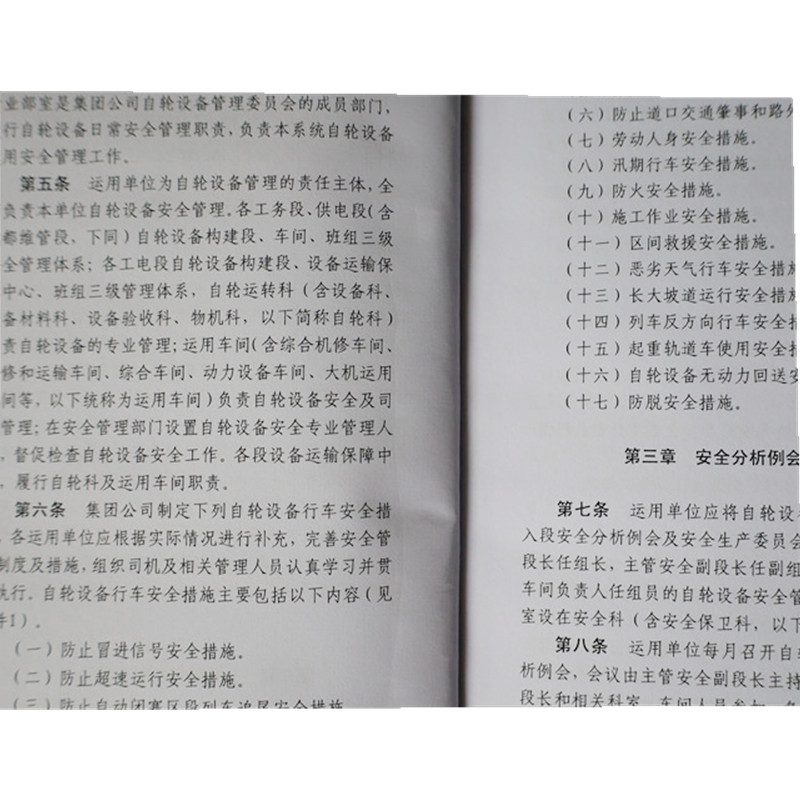 业部室是集团公司自轮设备管理委员会的成员部门,
行自轮设备日常安全管理职责,负责本系统自轮设备
用安全管理工作。
第五条 运用单位为自轮设备管理的责任主体,全
负责本单位自轮设备安全管理。各工务段、供电段(含
都维管段,下同)自轮设备构建段、车间、班组三级
全管理体系;各工电段自轮设备构建段、设备运输保
中心、班组三级管理体系,自轮运转科(含设备科、
备材料科、设备验收科、物机科,以下简称自轮科)
责自轮设备的专业管理;运用车间(含综合机修车间、
修和运输车间、综合车间、动力设备车间、大机运用
间等,以下统称为运用车间)负责自轮设备安全及司
管理;在安全管理部门设置自轮设备安全专业管理人
,督促检查自轮设备安全工作。各段设备运输保障中
,履行自轮科及运用车间职责。
第六条 集团公司制定下列自轮设备行车安全措
,各运用单位应根据实际情况进行补充,完善安全管
制度及措施,组织司机及相关管理人员认真学习并贯
执行。自轮设备行车安全措施主要包括以下内容(见
件1)。
(一)防止冒进信号安全措施。
(二)防止超速运行安全措施。
(三)防止自动闭塞区段列车追尾安全措施
(六)防止道口交通肇事和路外
(七)劳动人身安全措施。
(八)汛期行车安全措施。
(九)防火安全措施。
(十)施工作业安全措施。
(十一)区间救援安全措施。
(十二)恶劣天气行车安全措施
(十三)长大坡道运行安全措施
(十四)列车反方向行车安全措
(十五)起重轨道车使用安全措
(十六)自轮设备无动力回送安
(十七)防脱安全措施。
第三章 安全分析例会
第七条 运用单位应将自轮设
入段安全分析例会及安全生产委员会
段长任组长,主管安全副段长任副组
车间负责人任组员的自轮设备安全管
室设在安全科(含安全保卫科,以下
第八条 运用单位每月召开自轮
析例会,会议由主管安全副段长主持
段长和相关科室、车间人员参加